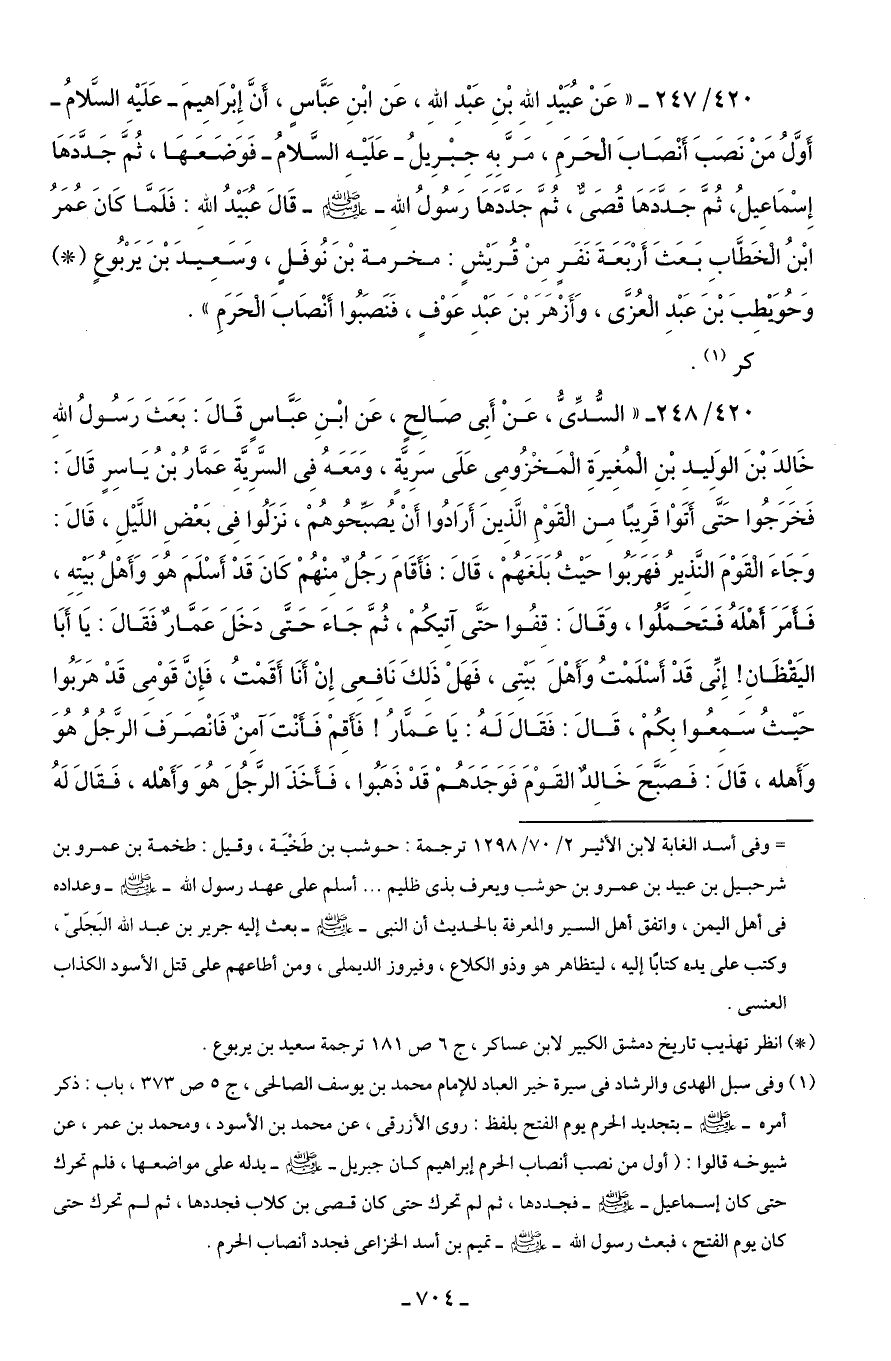 ٢٤٧/٤٢٠ ـ « عَنْ عُبَيْدِ اللهِ بْنِ عَبْدِ اللهِ ، عَنِ ابْنِ عَبَّاسٍ ، أَنَّ إِبْرَاهِيمَ ـ عَلَيْهِ السَّلَامُ ـ
أَوَّلُ مَنْ نَصَبَ أَنْصَابَ الْحَرَمِ ، مَرَّ بِهِ جِبْرِيلُ ـ عَلَيْهِ السَّلَامُ ـ فَوَضَعَهَا ، ثُمَّ جَدَّدَهَا
إِسْمَاعِيلُ، ثُمَّ جَدَّدَهَا قُصَىٌّ ، ثُمَّ جَدَّدَهَا رَسُولُ اللهِ ـ ﷺ ـ قَالَ عُبَيْدُ اللهِ : فَلَمَّا كَانَ عُمَرُ
ابْنُ الْخَطَّابِ بَعَثَ أَرْبَعَةَ نَفَرٍ مِنْ قُرَيْشٍ : مخرمة بْنَ نُوفَلٍ ، وَسَعِيدَ بْنَ يَرْبُوعٍ (*)
وَحُوَيْطِبَ بْنَ عَبْدِ الْعُزَّى ، وَأَزْهَرَ بْنَ عَبْدِ عَوْفٍ ، فَنَصَبُوا أَنْصَابَ الْحَرَمِ » .
كر (١) .
٢٤٨/٤٢٠ـ « السُّدِّىُّ ، عَنْ أَبِى صَالِحٍ ، عَنِ ابْنِ عَبَّاسٍ قَالَ : بَعَثَ رَسُولُ اللهِ
خَالِدَ بْنَ الوَلِيدِ بْنِ الْمُغِيرَةِ الْمَخْزُومِى عَلَى سَرِيَّةٍ ، وَمَعَهُ فِى السَّرِيَّةِ عَمَّارُ بْنُ يَاسِرٍ قَالَ :
فَخَرَجُوا حَتَّى أَتَوْا قَرِيبًا مِنَ القَوْمِ الَّذِينَ أَرَادُوا أَنْ يُصَبِّحُوهُمْ ، نَزَلُوا فِى بَعْضِ اللَّيْلِ ، قَالَ :
وَجَاءَ الْقَوْمَ النَّذِيرُ فَهَرَبُوا حَيْثُ بَلَغَهُمْ ، قَالَ : فَأَقَامَ رَجُلٌ مِنْهُمْ كَانَ قَدْ أَسْلَمَ هُوَ وَأَهْلُ بَيْتِهِ ،
فَأَمَرَ أَهْلَهُ فَتَحَمَّلُوا ، وَقَالَ : قِفُوا حَتَّى آتِيكُمْ ، ثُمَّ جَاءَ حَتَّى دَخَلَ عَمَّارٌ فَقَالَ : يَا أَبَا
اليَقْظَانِ! إِنِّى قَدْ أَسْلَمْتُ وَأَهْلَ بَيْتِى ، فَهَلْ ذَلِكَ نَافِعِى إِنْ أَنَا أَقَمْتُ ، فَإِنَّ قَوْمِى قَدْ هَرَبُوا
حَيْثُ سَمِعُوا بِكُمْ ، قَالَ : فَقَالَ لَهُ : يَا عَمَّارُ ! فَأَقِمْ فَأَنْتَ آمِنٌ فَانْصَرَفَ الرَّجُلُ هُوَ
وَأَهله ، قَالَ : فَصَبَّحَ خَالِدٌ القَوْمَ فَوَجَدَهُمْ قَدْ ذَهَبُوا ، فَأَخَذَ الرَّجُلَ هُوَ وَأَهْله ، فَقَالَ لَهُ
= وفى أسد الغابة لابن الأثير ٢/ ٧٠/ ١٢٩٨ ترجمة : حوشب بن طَخْيَة ، وقيل : طخمة بن عمرو بن
شرحبيل بن عبيد بن عمرو بن حوشب ويعرف بذى ظليم ... أسلم على عهد رسول الله ـ ﷺ ـ وعداده
فى أهل اليمن ، واتفق أهل السير والمعرفة بالحديث أن النبى ـ ﷺ ـ بعث إليه جرير بن عبد الله البَجَلىّ ،
وكتب على يده كتابًا إليه ، ليتظاهر هو وذو الكلاع ، وفيروز الديملى ، ومن أطاعهم على قتل الأسود الكذاب
العنسى .
(*) انظر تهذيب تاريخ دمشق الكبير لابن عساكر ، ج ٦ ص ١٨١ ترجمة سعيد بن يربوع .
(١) وفى سبل الهدى والرشاد فى سيرة خير العباد للإمام محمد بن يوسف الصالحى ، ج ٥ ص ٣٧٣ ، باب : ذكر
أمره ـ ﷺ ـ بتجديد الحرم يوم الفتح بلفظ : روى الأزرقى ، عن محمد بن الأسود ، ومحمد بن عمر ، عن
شيوخه قالوا : ( أول من نصب أنصاب الحرم إبراهيم كان جبريل ـ ﷺ ـ يدله على مواضعها ، فلم تحرك
حتى كان إسماعيل ـ ﷺ ـ فجددها ، ثم لم تحرك حتى كان قصى بن كلاب فجددها ، ثم لم تحرك حتى
كان يوم الفتح ، فبعث رسول الله ـ ﷺ ـ تميم بن أسد الخزاعى فجدد أنصاب الحرم .
ـ ٧٠٤ ـ